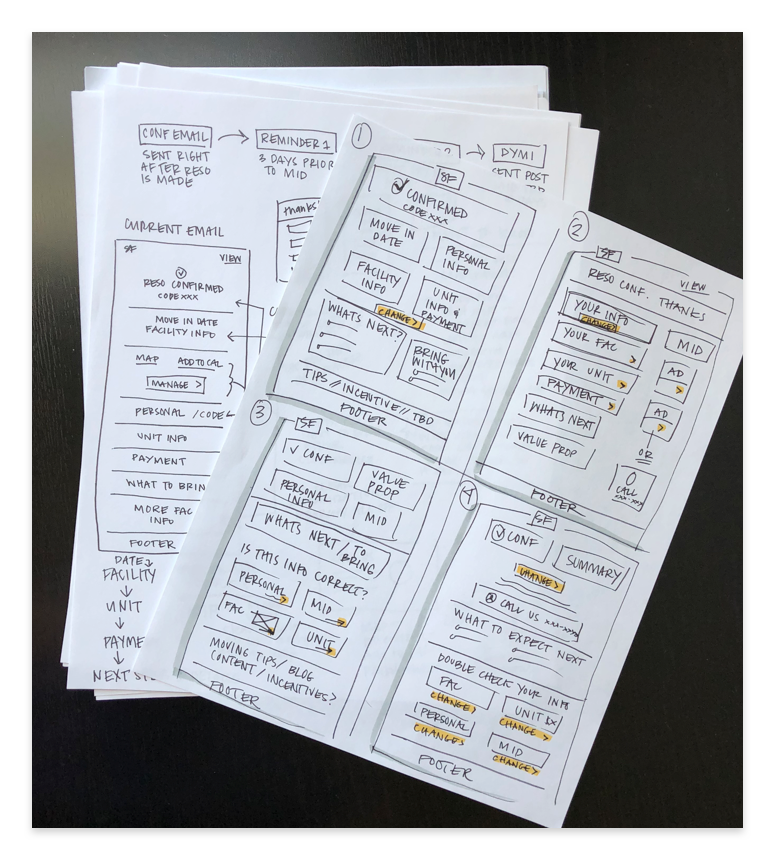 CONF EMAIL
SENT RIGHT
AFTER RESO
IS MADE
REMINDER 1
3 DAYS PRIOR
TO MID
DYMI
SENT POST
CURRENT EMAIL
SF
VIEW
RESO CONFIRMED
CODE XXX
MOVE IN DATE
FACILITY INFO
MAP ADD TO CAL
MANAGE >
PERSONAL /CODE
UNIT INFO
PAYMENT
WHAT TO BRIN
MORE FAC
INFO
FOOTER
DATE
FACILITY
UNIT
PAYME
NEXT ST
thanks!
1
SF
CONFIRMED
CODE XXX
MOVE IN
DATE
PERSONAL
INFO
FACILITY
INFO
UNIT
INFO &
PAYMENT
CHANGE >
WHATS NEXT?
BRING
WITH YOU
TIPS // INCENTIVE // TBD
FOOTER
2
SF
VIEW
RESO CONF. THANKS
YOUR INFO
CHANGE >
MID
YOUR FAC >
AD
>
YOUR UNIT >
PAYMENT >
AD
>
WHATS NEXT
OR
VALUE PROP
CALL
XXX-XXXX
FOOTER
3
SF
✓ CONF
VALUE
PROP
PERSONAL
INFO
MID
WHATS NEXT / TO
BRING
IS THIS INFO CORRECT?
PERSONAL
MID
FAC
UNIT
MOVING TIPS / BLOG
CONTENT / INCENTIVES?
FOOTER
4
SF
✓ CONF
SUMMARY
CHANGE >
CALL US XXX-XXXX
WHAT TO EXPECT NEXT
DOUBLE CHECK YOUR INFO
FAC
CHANGE >
UNIT DX
CHANGE >
PERSONAL
CHANGE >
MID
CHANGE >
FOOTER